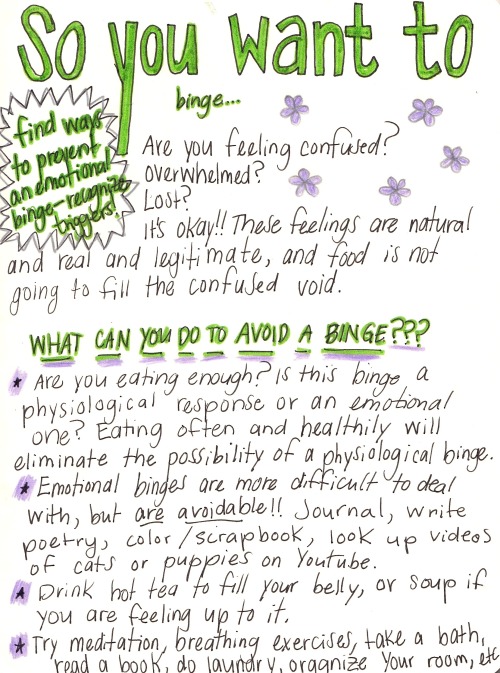 So you want to
binge...
find ways
to prevent
an emotional
binge-recognize
triggers!
Are you feeling confused?
Overwhelmed?
Lost?
It's okay!! These feelings are natural
and real and legitimate, and food is not
going to fill the confused void.
WHAT CAN YOU DO TO AVOID A BINGE???
★ Are you eating enough? Is this binge a
physiological response or an emotional
one? Eating often and healthily will
eliminate the possibility of a physiological binge.
★ Emotional binges are more difficult to deal
with, but are avoidable!! Journal, write
poetry, color/scrapbook, look up videos
of cats or puppies on Youtube.
★ Drink hot tea to fill your belly, or soup if
you are feeling up to it.
★ Try meditation, breathing exercises, take a bath,
read a book, do laundry, oragnize your room, etc